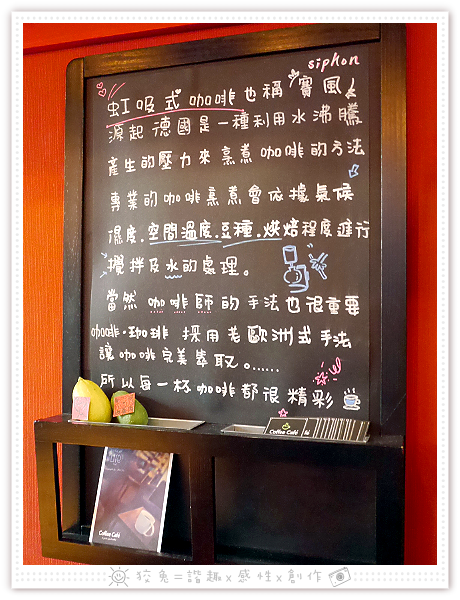 sipkon
虹吸式咖啡也稱"賽風"
源起德國是一種利用水沸騰
產生的壓力來烹煮咖啡的方法
專業的咖啡烹煮會依據氣候
溫度.空間溫度.豆種.烘焙程度進行
攪拌及水的處理。
當然 咖啡師的手法也很重要
咖啡·珈琲 採用老歐洲式手法
讓咖啡完美萃取。......
所以每一杯咖啡都很精彩
Coffee Café
Coffee Café
狡兔=諧趣x感性x創作